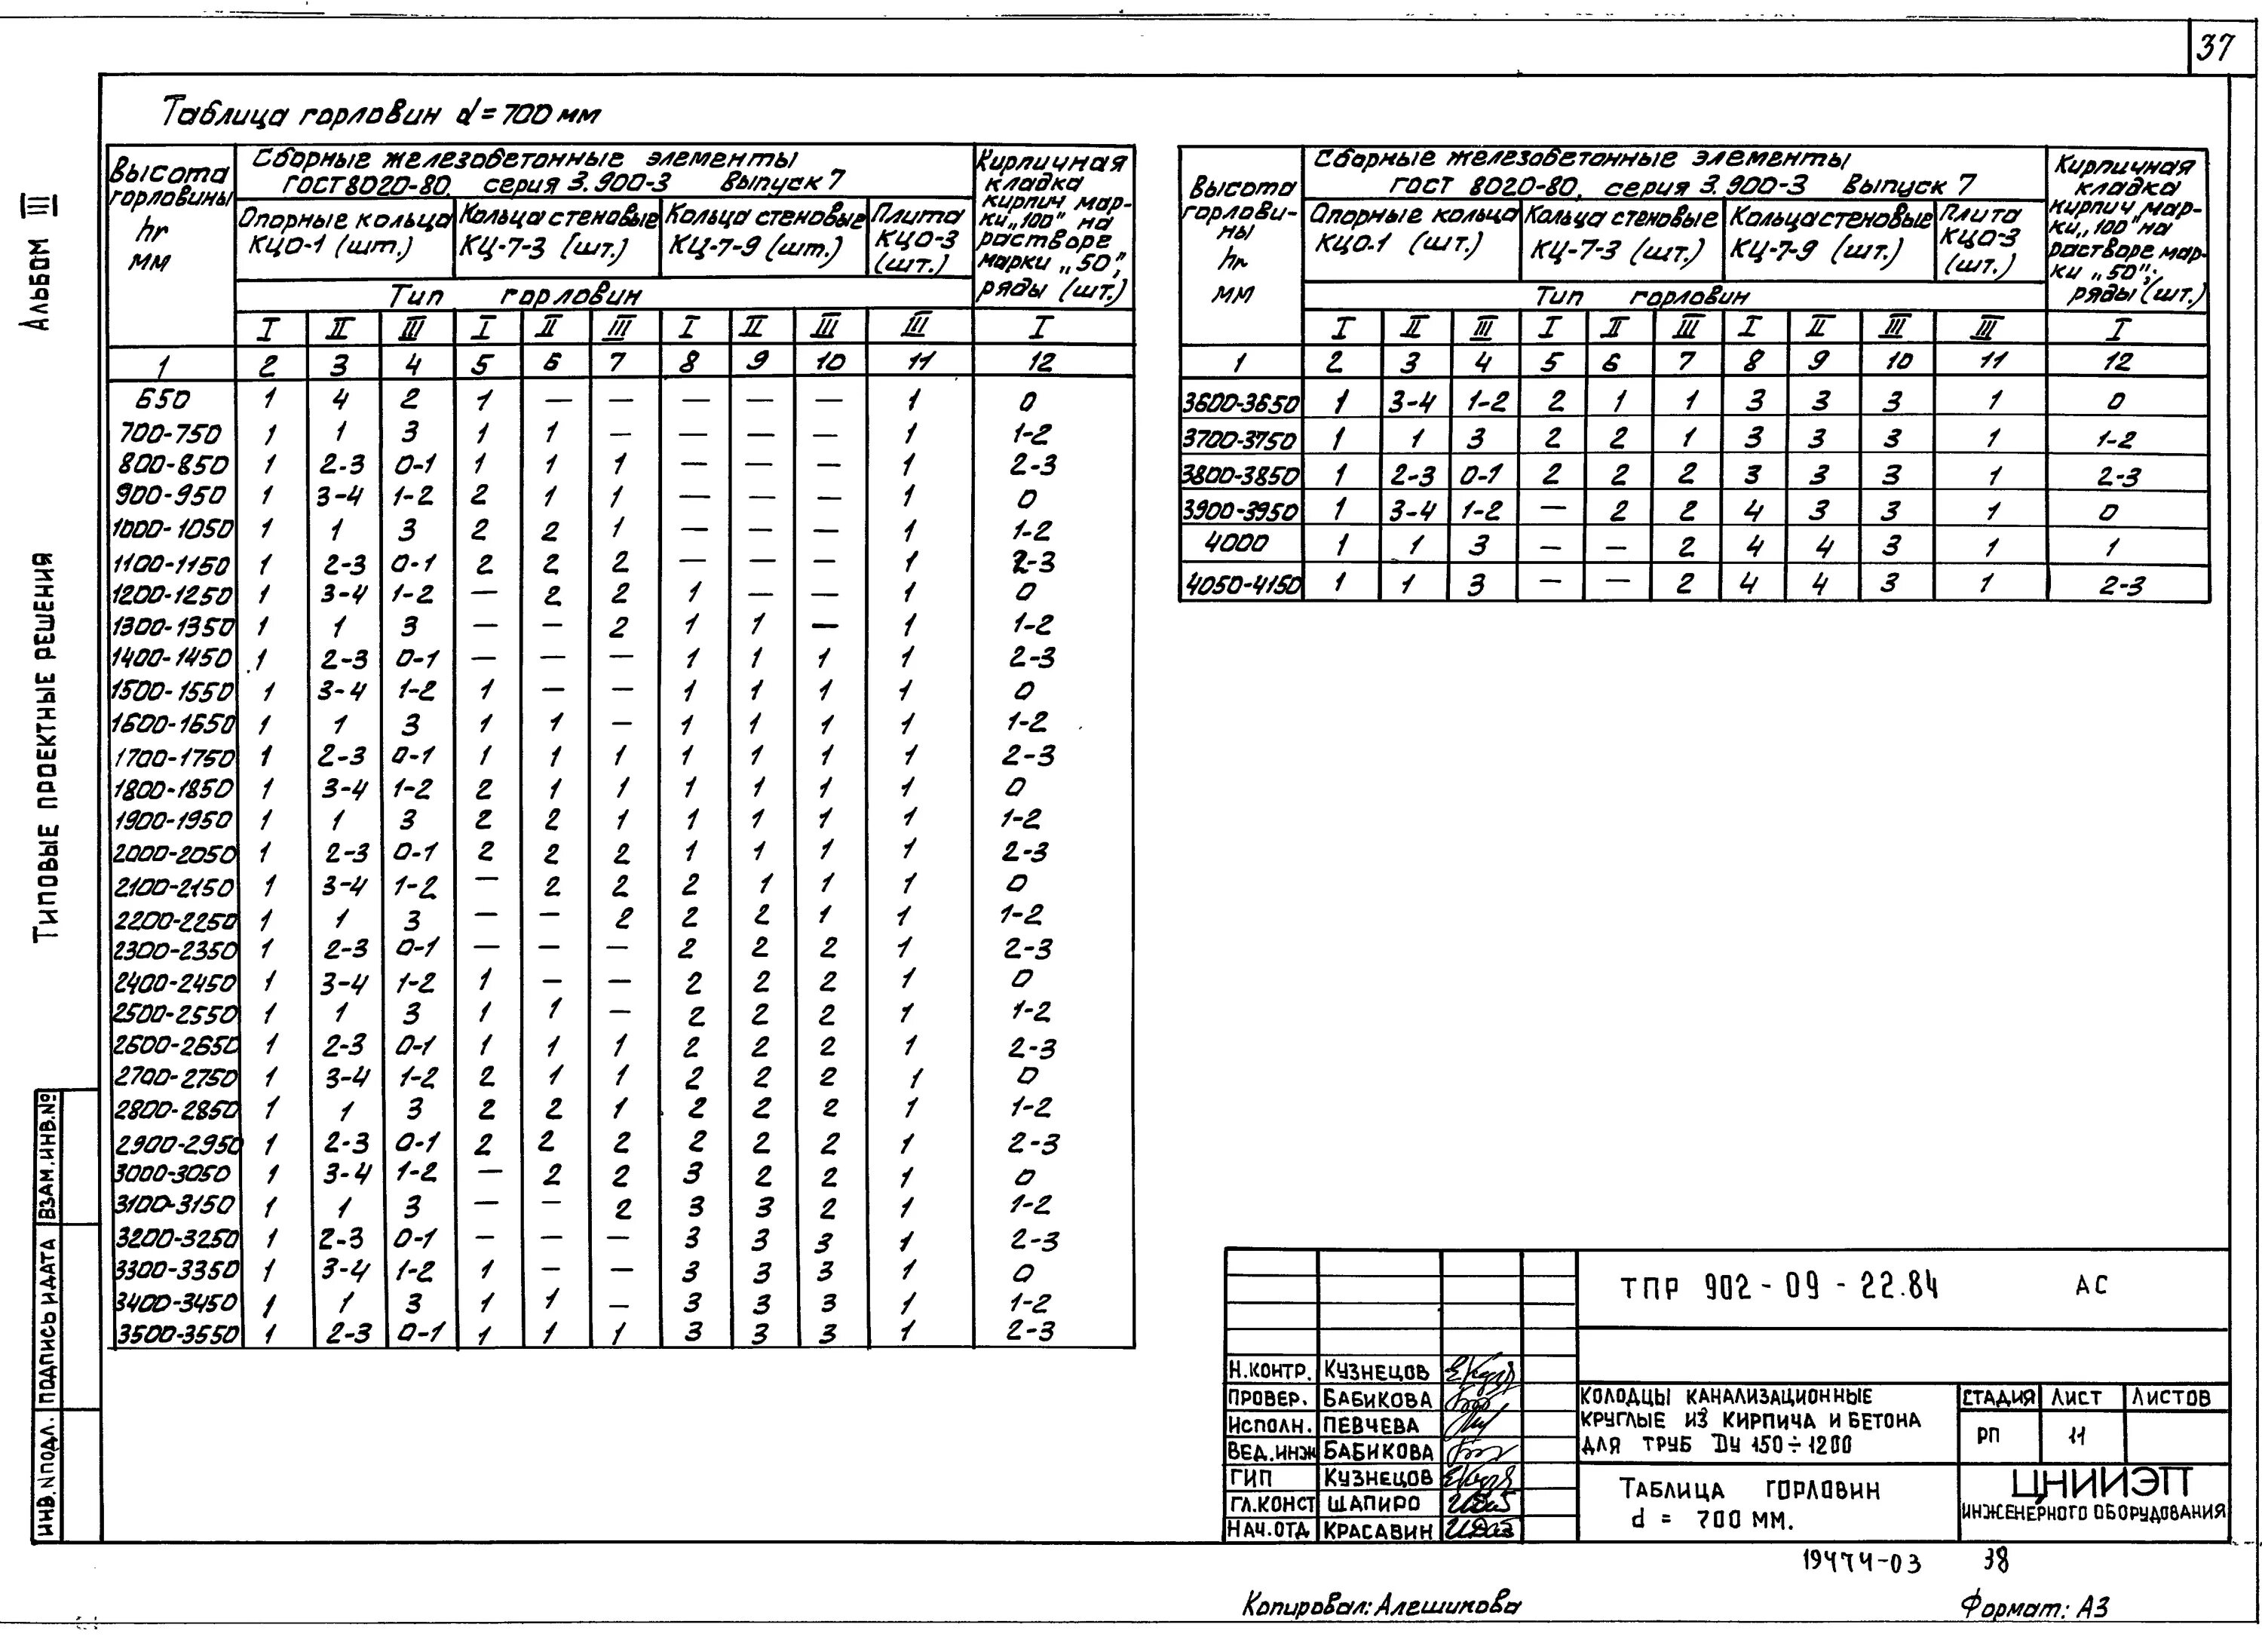 37
Таблица горловин d=700 мм
Альбом III
Типовые проектные решения
Высота горловины hг мм
Сборные железобетонные элементы
ГОСТ 8020-80, серия 3.900-3 Выпуск 7
Опорные кольца КЦО-1 (шт.) Кольца стеновые КЦ-7-3 (шт.) Кольца стеновые КЦ-7-9 (шт.) Плита КЦО-3 (шт.)
Кирпичная кладка кирпич марки „100" на растворе марки „50", ряды (шт.)
Тип горловин
I II III I II III I II III III I
1 2 3 4 5 6 7 8 9 10 11 12
650 1 4 2 1 — — — — — 1 0
700-750 1 1 3 1 1 — — — — 1 1-2
800-850 1 2-3 0-1 1 1 1 — — — 1 2-3
900-950 1 3-4 1-2 2 1 1 — — — 1 0
1000-1050 1 1 3 2 2 1 — — — 1 1-2
1100-1150 1 2-3 0-1 2 2 2 — — — 1 2-3
1200-1250 1 3-4 1-2 — 2 2 1 — — 1 0
1300-1350 1 1 3 — — 2 1 1 — 1 1-2
1400-1450 1 2-3 0-1 — — — 1 1 1 1 2-3
1500-1550 1 3-4 1-2 1 — — 1 1 1 1 0
1600-1650 1 1 3 1 1 — 1 1 1 1 1-2
1700-1750 1 2-3 0-1 1 1 1 1 1 1 1 2-3
1800-1850 1 3-4 1-2 2 1 1 1 1 1 1 0
1900-1950 1 1 3 2 2 1 1 1 1 1 1-2
2000-2050 1 2-3 0-1 2 2 2 1 1 1 1 2-3
2100-2150 1 3-4 1-2 — 2 2 2 1 1 1 0
2200-2250 1 1 3 — — 2 2 2 1 1 1-2
2300-2350 1 2-3 0-1 — — — 2 2 2 1 2-3
2400-2450 1 3-4 1-2 1 — — 2 2 2 1 0
2500-2550 1 1 3 1 1 — 2 2 2 1 1-2
2600-2650 1 2-3 0-1 1 1 1 2 2 2 1 2-3
2700-2750 1 3-4 1-2 2 1 1 2 2 2 1 0
2800-2850 1 1 3 2 2 1 2 2 2 1 1-2
2900-2950 1 2-3 0-1 2 2 2 2 2 2 1 2-3
3000-3050 1 3-4 1-2 — 2 2 3 2 2 1 0
3100-3150 1 1 3 — — 2 3 3 2 1 1-2
3200-3250 1 2-3 0-1 — — — 3 3 3 1 2-3
3300-3350 1 3-4 1-2 1 — — 3 3 3 1 0
3400-3450 1 1 3 1 1 — 3 3 3 1 1-2
3500-3550 1 2-3 0-1 1 1 1 3 3 3 1 2-3
Высота горловины hг мм
Сборные железобетонные элементы
ГОСТ 8020-80, серия 3.900-3 Выпуск 7
Опорные кольца КЦО.1 (шт.) Кольца стеновые КЦ-7-3 (шт.) Кольца стеновые КЦ-7-9 (шт.) Плита КЦО-3 (шт.)
Кирпичная кладка кирпич марки „100" на растворе марки „50", ряды (шт.)
Тип горловин
I II III I II III I II III III I
1 2 3 4 5 6 7 8 9 10 11 12
3600-3650 1 3-4 1-2 2 1 1 3 3 3 1 0
3700-3750 1 1 3 2 2 1 3 3 3 1 1-2
3800-3850 1 2-3 0-1 2 2 2 3 3 3 1 2-3
3900-3950 1 3-4 1-2 — 2 2 4 3 3 1 0
4000 1 1 3 — — 2 4 4 3 1 1
4050-4150 1 1 3 — — 2 4 4 3 1 2-3
Инв.№подл. Подпись и дата Взам.инв.№
ТПР 902-09-22.84 АС
Н.контр. Кузнецов
Провер. Бабикова
Исполн. Певчева
Вед.инж Бабикова
ГИП Кузнецов
Гл.конст Шапиро
Нач.отд Красавин
Колодцы канализационные
круглые из кирпича и бетона
для труб Dу 150÷1200
Стадия Лист Листов
РП 11
Таблица горловин
d = 700 мм.
ЦНИИЭП
инженерного оборудования
19474-03 38
Копировал: Алешикова
Формат: А3